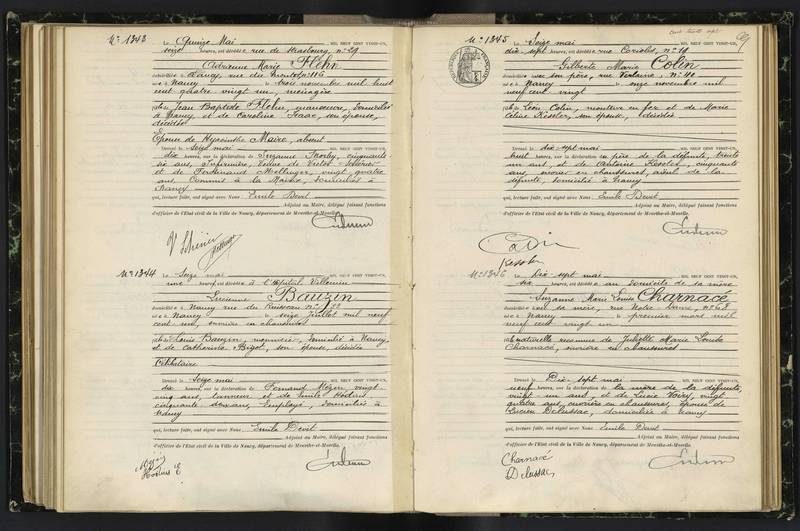 N° 1343
Le Quinze Mai MIL NEUF CENT VINGT-UN,
seize heures, est décédée rue de Strasbourg, n° 29
Adrienne Marie Flehn
domiciliée à Nancy, rue du n° 116
née à Nancy le trois novembre mil huit
cent quatre vingt un, ménagère
fille de Jean Baptiste Flehn, manœuvre, domicilié
à Nancy et de Caroline Isaac, son épouse,
décédée
Épouse de Hyacinthe Maire, absent
Dressé le Seize mai MIL NEUF CENT VINGT-UN,
dix heures, sur la déclaration de Suzanne cinquante
six ans, infirmière, Veuve de Victor
et de Ferdinand Mellinger, vingt quatre
ans, Commis à la Mairie, domiciliés à
Nancy
qui, lecture faite, ont signé avec Nous Emile Devit
Adjoint au Maire, délégué faisant fonctions
d'officier de l'Etat civil de la Ville de Nancy, département de Meurthe-et-Moselle.
N° 1344
Le Seize mai MIL NEUF CENT VINGT-UN,
une heures, est décédé à l'Hôpital Villemin
Lucienne Bauzin
domiciliée à Nancy rue du Ruisseau n°
née à Nancy le seize juillet mil neuf
cent un, ouvrière en chaussures
fille de Louis Bauzin, domicilié à Nancy
et de Catherine Bigot, son épouse, décédée
Célibataire
Dressé le Seize mai MIL NEUF CENT VINGT-UN,
dix heures, sur la déclaration de Fernand Mézin, vingt
cinq ans, tanneur et de Emile Hodius,
cinquante deux ans, Employé, domiciliés à
Nancy
qui, lecture faite, ont signé avec Nous Emile Devit
Adjoint au Maire, délégué faisant fonctions
d'officier de l'Etat civil de la Ville de Nancy, département de Meurthe-et-Moselle.
N° 1345
Le Seize mai MIL NEUF CENT VINGT-UN,
dix sept heures, est décédée rue Corioles, n° 19
Gilberte Marie Colin
domiciliée avec son père, rue Verlaine, n° 40
née à Nancy le onze novembre mil
neuf cent vingt
fille de Léon Colin, monteur en fer et de Marie
Céline Kessler, son épouse, décédée
Dressé le dix-sept mai MIL NEUF CENT VINGT-UN,
huit heures, sur la déclaration du père de la défunte, trente
un ans, et de Kessler, cinquante
ans, ouvrier en chaussures, aïeul de la
défunte, domiciliés à Nancy
qui, lecture faite, ont signé avec Nous Emile Devit
Adjoint au Maire, délégué faisant fonctions
d'officier de l'Etat civil de la Ville de Nancy, département de Meurthe-et-Moselle.
Colin
Kessler
N° 1346
Le Dix-sept mai MIL NEUF CENT VINGT-UN,
six heures, est décédée au domicile de sa mère
Suzanne Marie Louise Charnacé
domiciliée avec sa mère, rue Notre Dame, n° 68
née à Nancy le premier mars mil
neuf cent vingt un
fille naturelle reconnue de Juliette Marie Louise
Charnacé, ouvrière en chaussures
Dressé le Dix-sept mai MIL NEUF CENT VINGT-UN,
neuf heures, sur la déclaration de la mère de la défunte
vingt-un ans, et de Lucie Voiry, vingt
quatre ans, ouvrière en chaussures, épouse de
Lucien Delussac, domiciliées à Nancy
qui, lecture faite, ont signé avec Nous Emile Devit
Adjoint au Maire, délégué faisant fonctions
d'officier de l'Etat civil de la Ville de Nancy, département de Meurthe-et-Moselle.
Charnacé
Delussac